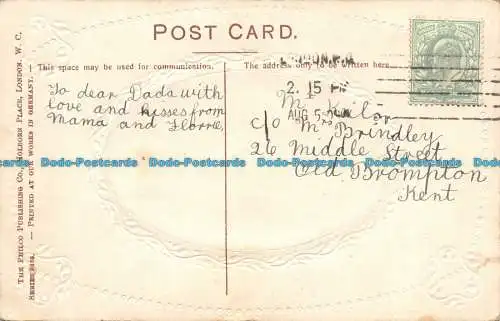 POST CARD.
This space may be used for communication.
The address only to be written here.
To dear Dada with
love and kisses from
Mama and Florrie
2. 15 P
AUG 5
M
c/o Mrs Brindley
26 Middle Street
Old Brompton
Kent
THE PHILCO PUBLISHING CO., HOLBORN PLACE, LONDON. W. C.
— PRINTED AT OUR WORKS IN GERMANY. —
Dodo-Postcards Dodo-Postcards Dodo-Postcards Dodo-Postcards Dodo-Postcards